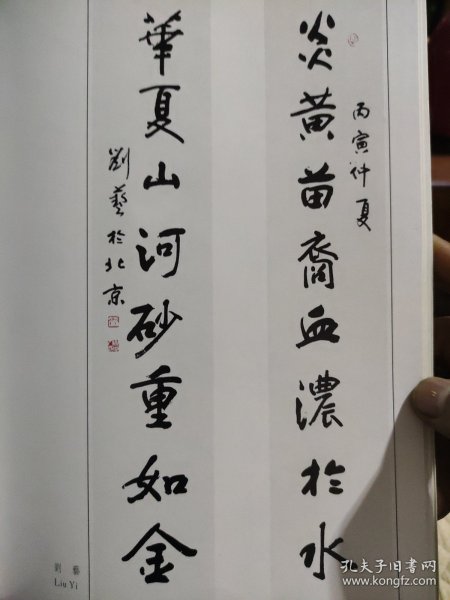 炎黃苗裔血濃於水
丙寅仲夏
華夏山河砂重如金
劉藝於北京
劉藝
Liu Yi
孔夫子旧书网
www.kongfz.com